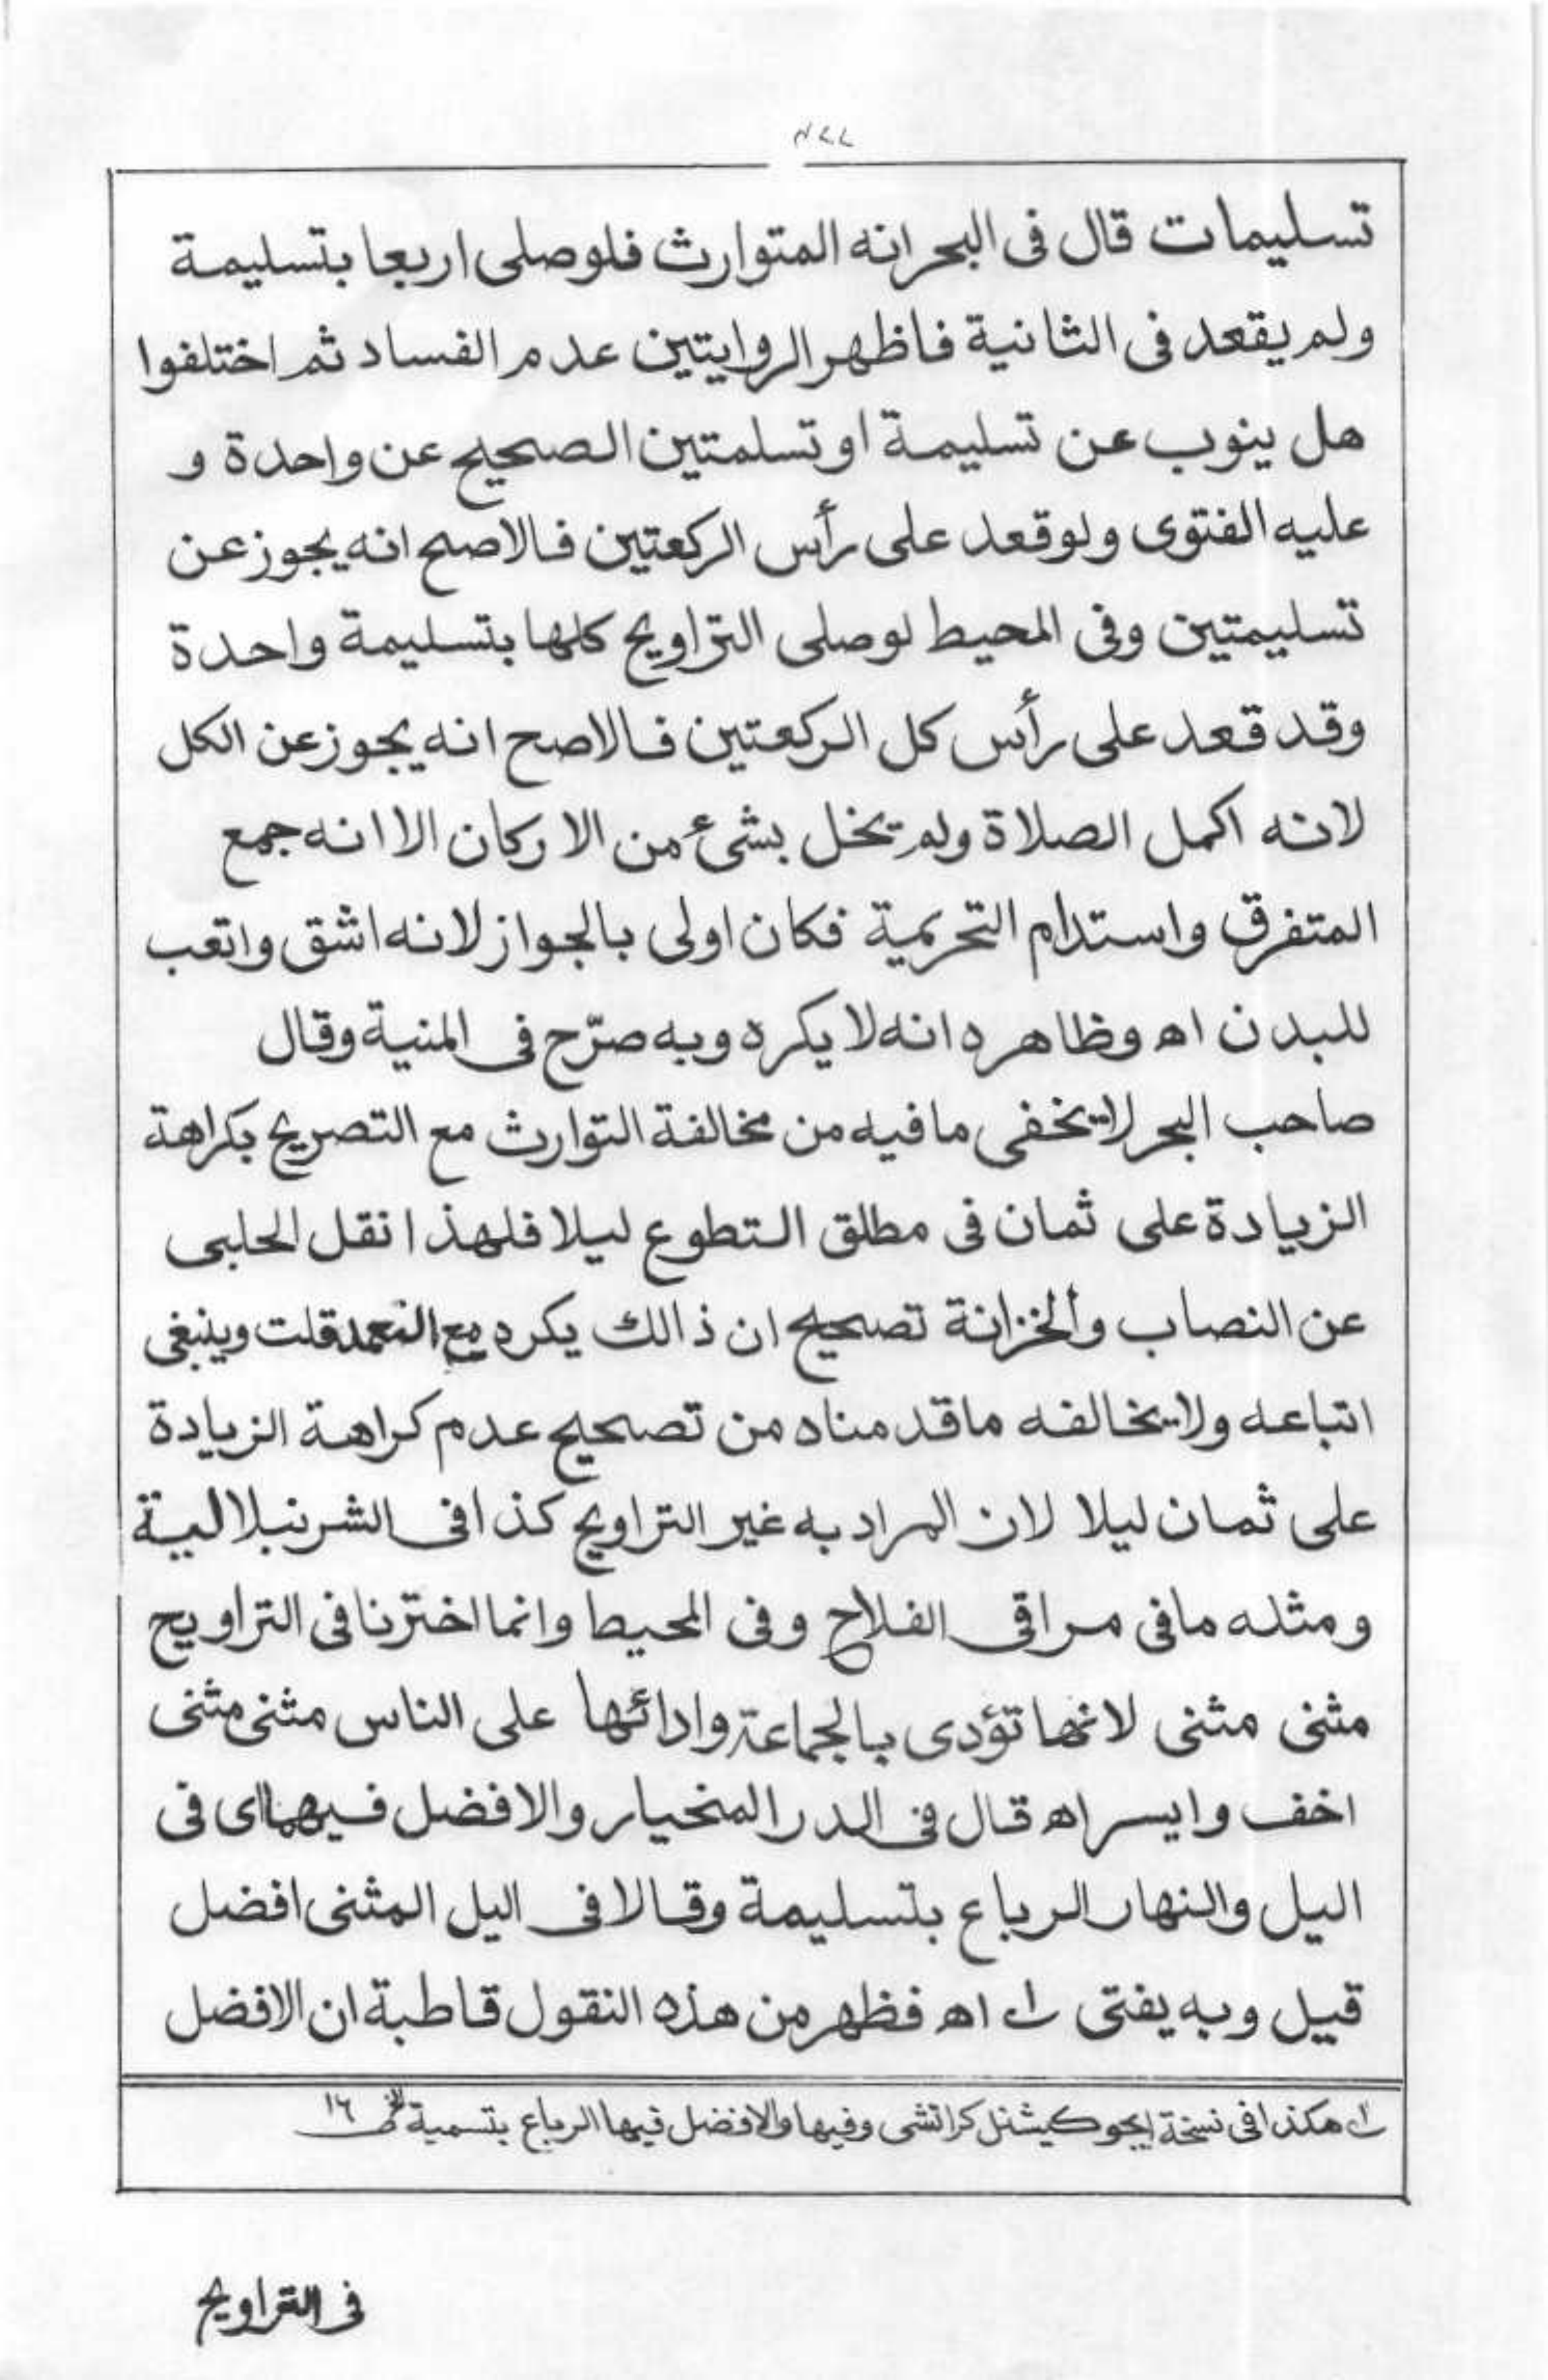 تسليمات قال فى البحر انه المتوارث فلو صلى اربعا بتسليمة
ولم يقعد فى الثانية فاظهر الروايتين عدم الفساد ثم اختلفوا
هل ينوب عن تسليمة او تسلمتين الصحيح عن واحدة و
عليه الفتوى ولو قعد على رأس الركعتين فالاصح انه يجوز عن
تسليمتين وفى المحيط لو صلى التراويح كلها بتسليمة واحدة
وقد قعد على رأس كل الركعتين فالاصح انه يجوز عن الكل
لانه اكمل الصلاة ولم يخل بشئ من الاركان الا انه جمع
المتفرق واستدام التحريمة فكان اولى بالجواز لانه اشق واتعب
للبدن اھ وظاهره انه لا يكره وبه صرّح فى المنية وقال
صاحب البحر لا يخفى ما فيه من مخالفة التوارث مع التصريح بكراهة
الزيادة على ثمان فى مطلق التطوع ليلا فلهذا نقل الحلبى
عن النصاب والخزانة تصحيح ان ذالك يكره مع التعمد قلت وينبغى
اتباعه ولا يخالفه ما قدمناه من تصحيح عدم كراهة الزيادة
على ثمان ليلا لان المراد به غير التراويح كذا فى الشرنبلالية
ومثله ما فى مراقى الفلاح وفى المحيط وانما اخترنا فى التراويح
مثنى مثنى لانها تؤدى بالجماعة وادائها على الناس مثنى مثنى
اخف وايسر اھ قال فى الدر المنحيار والافضل فيهما اى فى
اليل والنهار الرباع بتسليمة وقالا فى اليل المثنى افضل
قيل وبه يفتى ؎۱ اھ فظهر من هذه النقول قاطبة ان الافضل
؎۱ هكذا فى نسخة ايجوكيشنل كراتشى وفيها والافضل فيها الرباع بتسمية الخ
فى التراويح